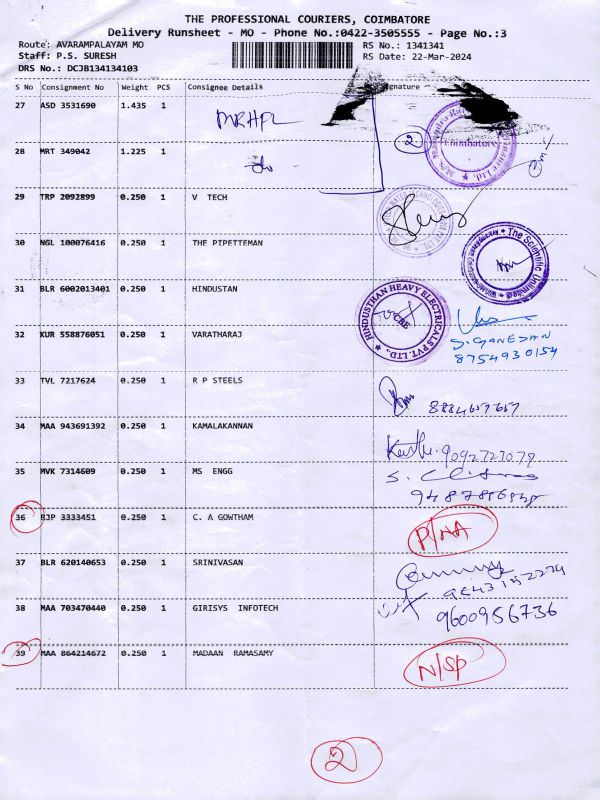 THE PROFESSIONAL COURIERS, COIMBATORE
Delivery Runsheet - MO - Phone No.:0422-3505555 - Page No.:3
Route: AVARAMPALAYAM MO RS No.: 1341341
Staff: P.S. SURESH RS Date: 22-Mar-2024
DRS No.: DCJB134134103
S No Consignment No Weight PCS Consignee Details Signature
27 ASD 3531690 1.435 1
MRHFL
28 MRT 349042 1.225 1
2
Coimbatore
29 TRP 2092899 0.250 1 V TECH
30 NGL 100076416 0.250 1 THE PIPETTEMAN
The Scientific Unlimited
31 BLR 6002013401 0.250 1 HINDUSTAN
HINDUSTHAN HEAVY ELECTRICALS PVT.LTD.,
CBE
32 KUR 558876051 0.250 1 VARATHARAJ
S. GANESAN
8754930154
33 TVL 7217624 0.250 1 R P STEELS
34 MAA 943691392 0.250 1 KAMALAKANNAN
35 MVK 7314609 0.250 1 MS ENGG
36 RJP 3333451 0.250 1 C. A GOWTHAM
P/NA
37 BLR 620140653 0.250 1 SRINIVASAN
38 MAA 703470440 0.250 1 GIRISYS INFOTECH
9600956736
39 MAA 864214672 0.250 1 MADAAN RAMASAMY
N/SP
2